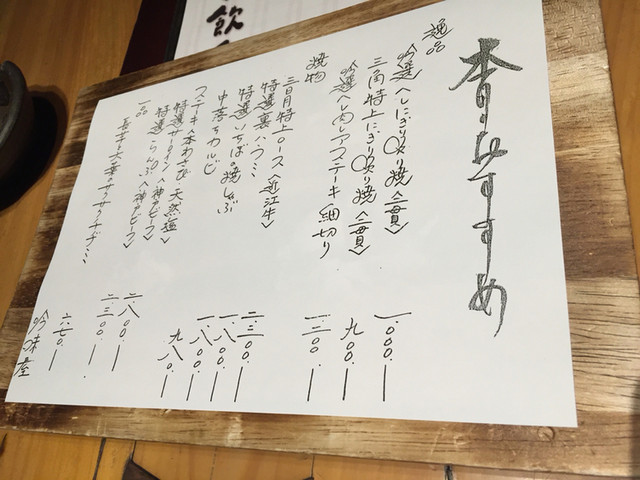 本日のおすすめ
逸品
吟選ヘレにぎり炙り焼〈二貫〉 一、〇〇〇.ー
三角特上にぎり炙り焼〈二貫〉 九〇〇.ー
吟選ヘレ肉レアステーキ〈細切り 一、三〇〇.ー
焼物
三日月特上ロース〈近江牛〉 二、三〇〇.ー
特選裏ハラミ 一、八〇〇.ー
特選いちばの焼しゃぶ 一、八〇〇.ー
中落ちカルビ 九八〇.ー
ステーキ〈本わさび・天然塩〉
特選サーロイン〈神戸ビーフ〉 二、八〇〇.ー
特選らんぷ〈神戸ビーフ〉 二、三〇〇.ー
一品
長芋と大葉のサクサクチヂミ 六七〇.ー
吟味屋
飲